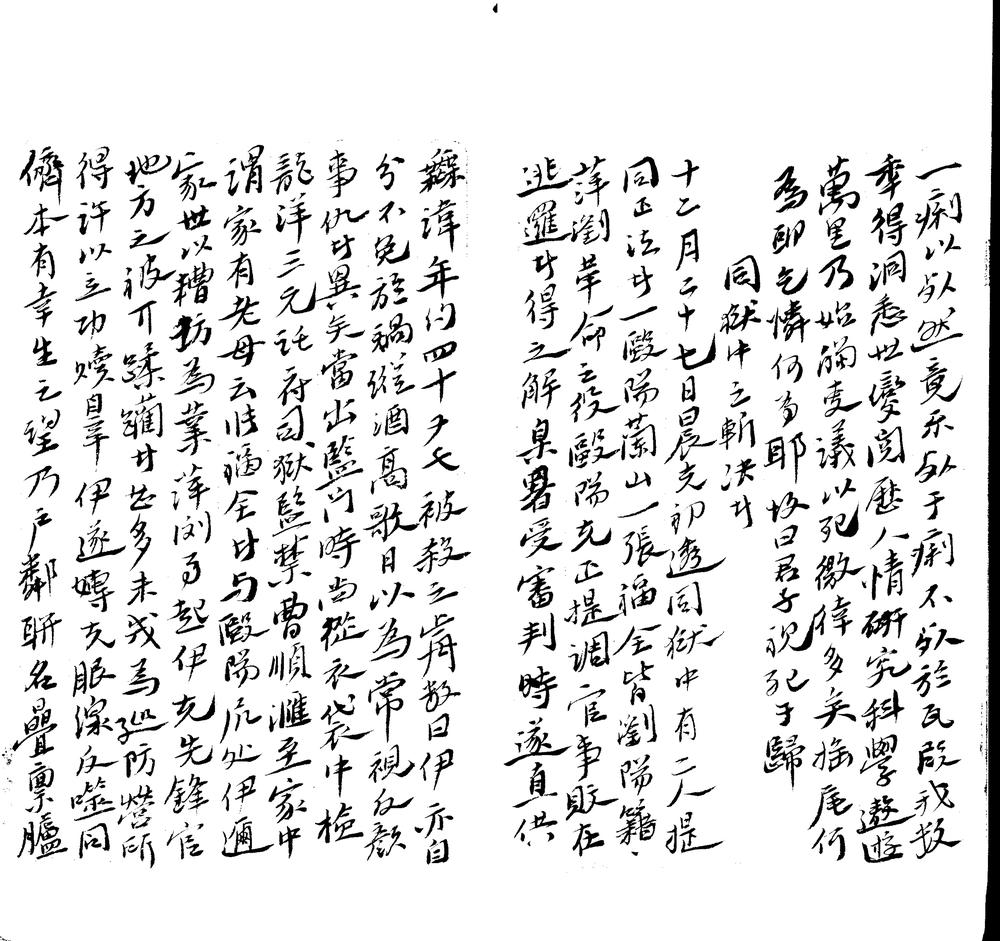 一痢以死然竟不死于痢不死於瓦砲我數
年得洞悉世變閱歷人情研究科學遨遊
萬里乃始獨變議以死徼倖多矣搖尾何
為即乞憐何為耶故曰君子視死于歸
同獄中之斬決者
十二月二十七日晨光初透同獄中有二人提
同正法者一歐陽蘭山一張福全皆劉陽籍
萍瀏革命之役歐陽充正提調官事敗在
逃邏者得之解臬署受審判時遂直供
諱年約四十夕七被殺之前數日伊亦自
分不免於禍縱酒高歌日以為常視反顏
事仇者異矣當出監門時尚從衣袋中檢
龍洋三元託府司獄監禁曹順滙至家中
謂家有老母云張福全者与歐陽
家世以糟坊為業萍瀏事起伊充先鋒官
地方之被蹂躪者甚多未幾為巡防營所
得許以立功贖罪伊遂轉充眼線反噬同
儕本有幸生之望乃戶鄰聯名疊稟臚